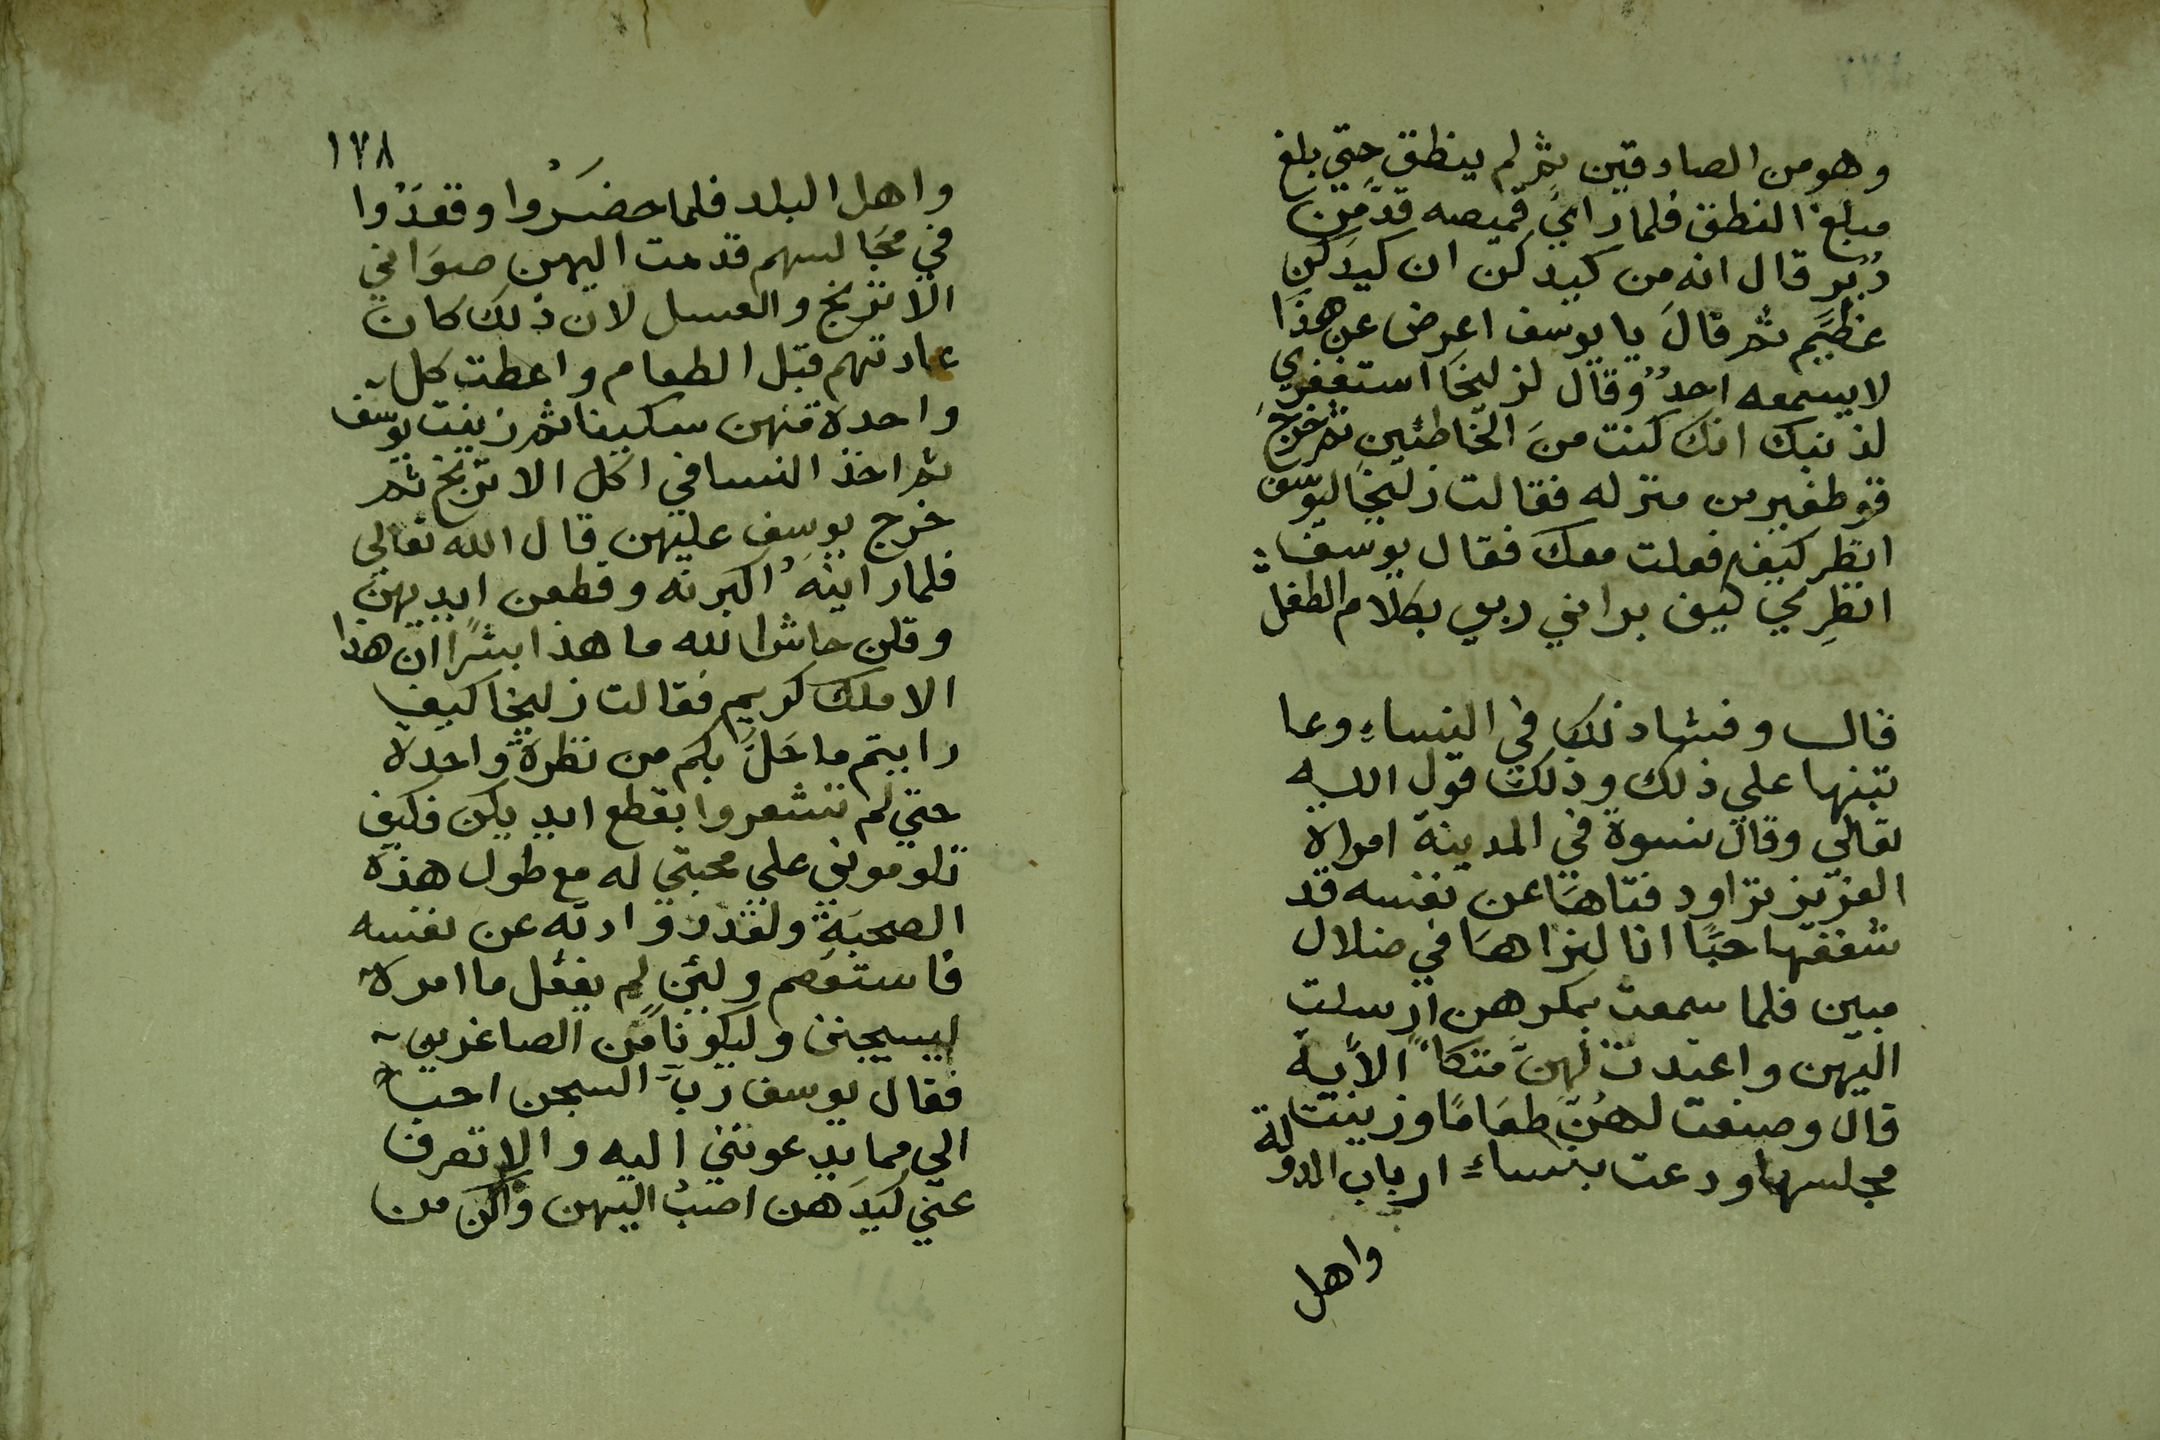 وهو من الصادقين ثم لم ينطق حتي بلغ
مبلغ النطق فلما راي قميصه قد من
دبر قال انه من كيدكن ان كيدكن
عظيم ثم قال يا يوسف اعرض عن هذا
لا يسمعه احد وقال لزليخا استغفري
لذنبك انك كنت من الخاطئين ثم خرج
قوطفير من منزله فقالت زليخا ليوسف
انظر كيف فعلت معك فقال يوسف
انظري كيف براني ربي بكلام الطفل
قال وفشا ذلك في النساء وعا
تبنها علي ذلك وذلك قول الله
تعالي وقال نسوة في المدينة امراة
العزيز تراود فتاها عن نفسه قد
شغفها حبًا انا لنراها في ضلال
مبين فلما سمعت بمكرهن ارسلت
اليهن واعتدت لهن متكاً الآية
قال وصنعت لهن طعامًا وزينت
مجلسها ودعت بنساء ارباب الدولة
واهل
١٧٨
واهل البلد فلما حضروا وقعدوا
في مجالسهم قدمت اليهن صواني
الاترنج والعسل لان ذلك كان
عادتهم قبل الطعام واعطت كل
واحدة منهن سكينا ثم زينت يوسف
ثم اخذ النسا في اكل الاترنج ثم
خرج يوسف عليهن قال الله تعالي
فلما راينه اكبرنه وقطعن ايديهن
وقلن حاش الله ما هذا بشرًا ان هذا
الا ملك كريم فقالت زليخا كيف
رايتم ما حل بكم من نظرة واحدة
حتي لم تشعروا بقطع ايديكن فكيف
تلوموني علي محبتي له مع طول هذه
الصحبة ولقد راودته عن نفسه
فاستعصم ولئن لم يفعل ما امره
ليسجنن وليكونًا من الصاغرين
فقال يوسف رب السجن احب
الي مما يدعونني اليه والا تصرف
عني كيدهن اصب اليهن واكن من